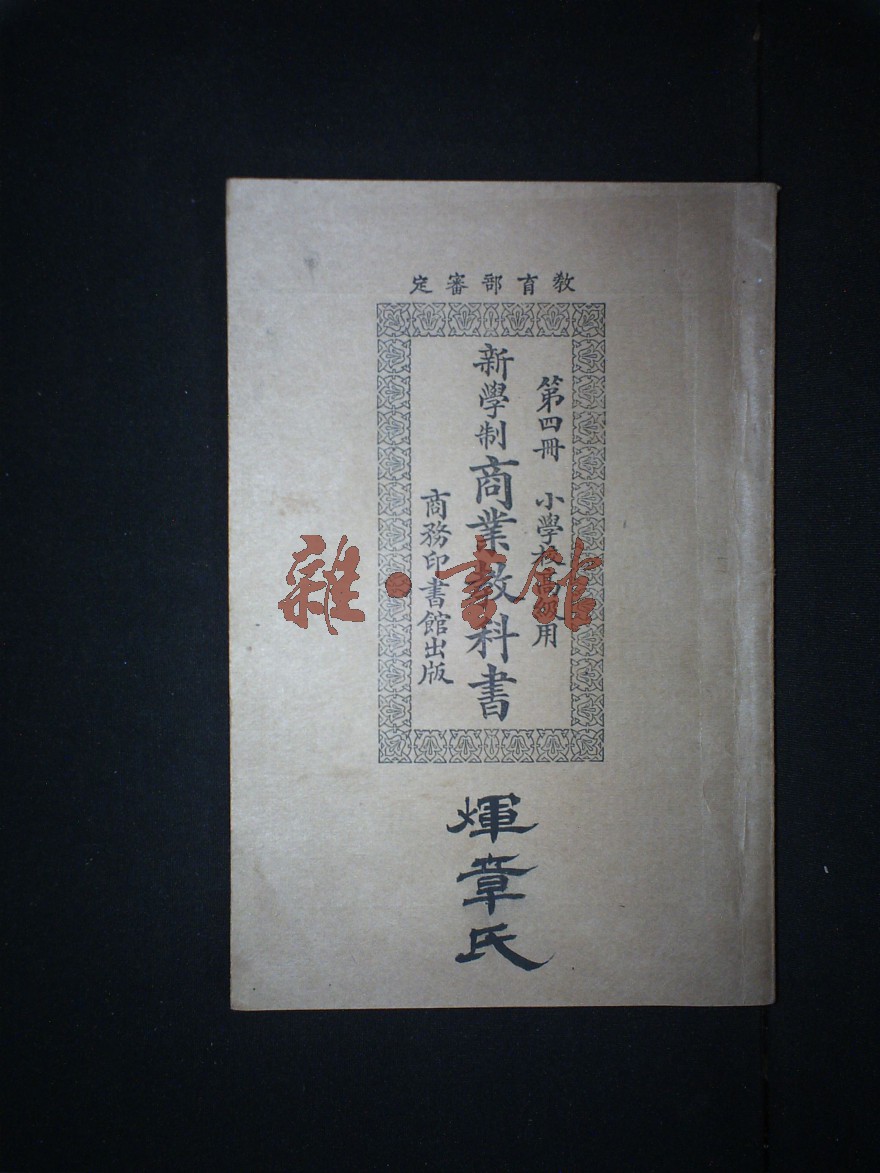 教育部審定
第四冊 小學校高級用
新學制商業教科書
商務印書館出版
煇章氏
雜·書館